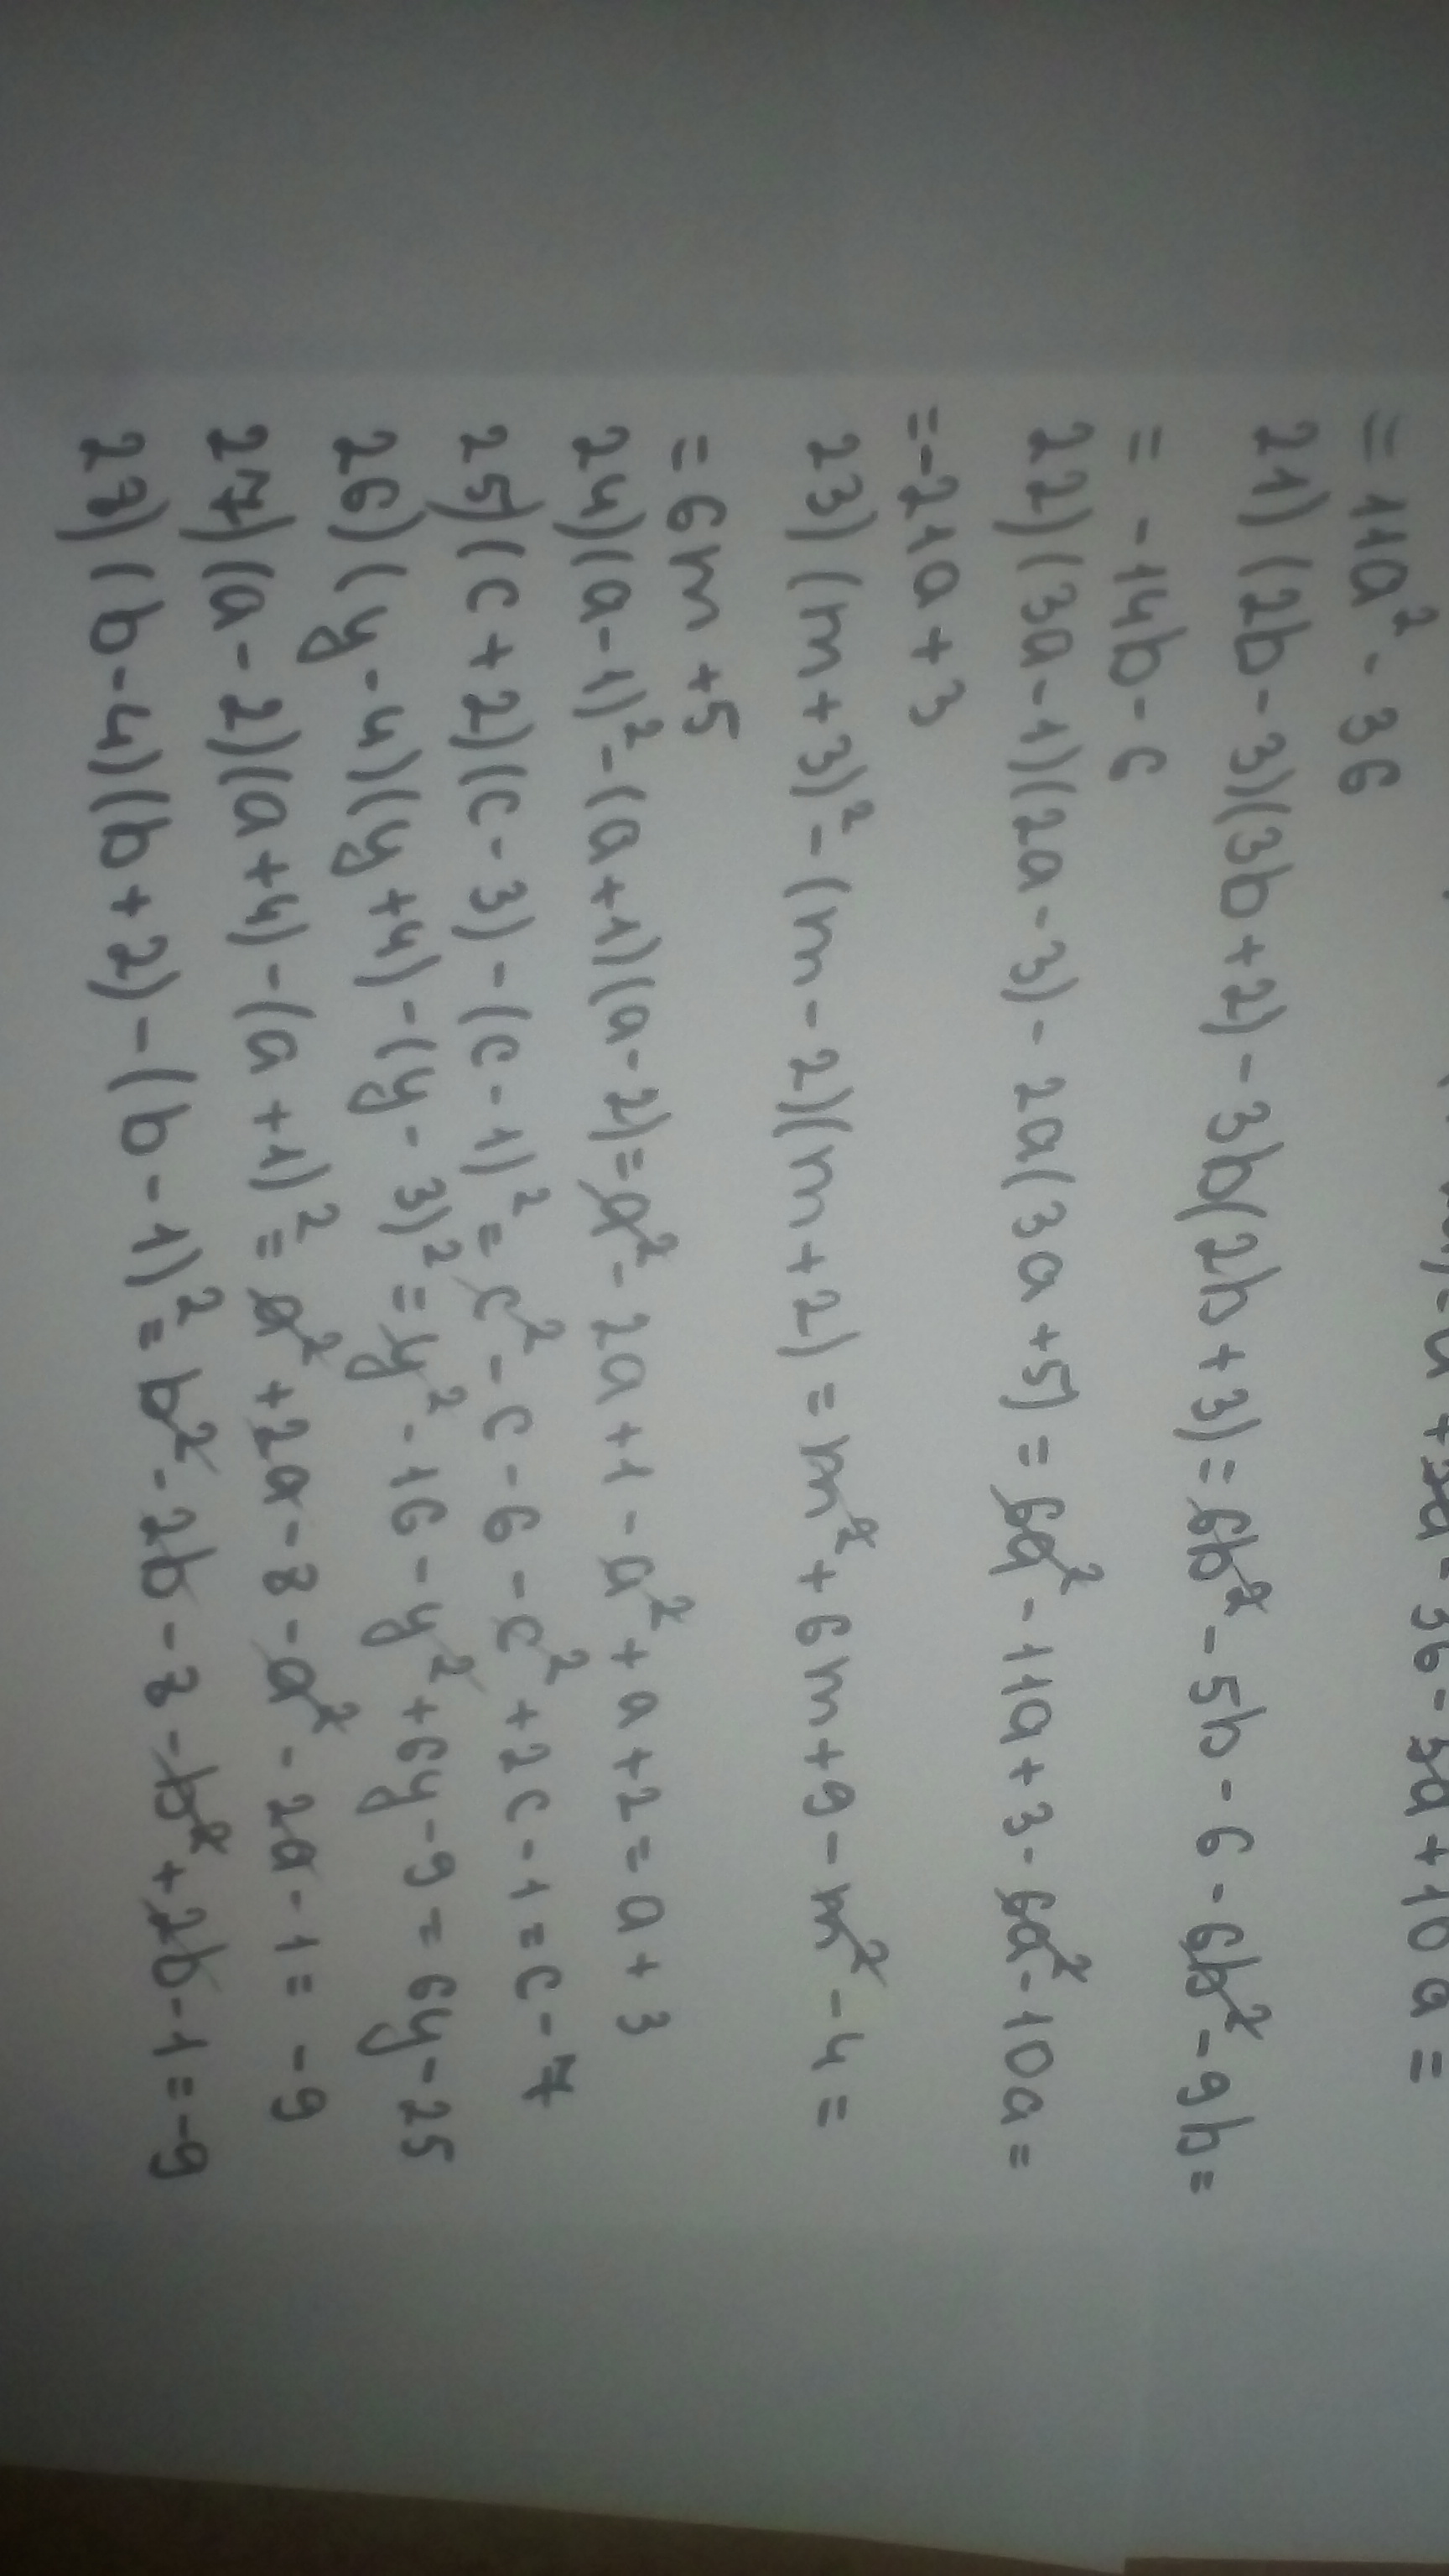 = 11a² - 36
21) (2b - 3)(3b + 2) - 3b(2b + 3) = 6b² - 5b - 6 - 6b² - 9b =
= - 14b - 6
22) (3a - 1)(2a - 3) - 2a(3a + 5) = 6a² - 11a + 3 - 6a² - 10a =
= - 21a + 3
23) (m + 3)² - (m - 2)(m + 2) = m² + 6m + 9 - m² - 4 =
= 6m + 5
24) (a - 1)² - (a + 1)(a - 2) = a² - 2a + 1 - a² + a + 2 = a + 3
25) (c + 2)(c - 3) - (c - 1)² = c² - c - 6 - c² + 2c - 1 = c - 7
26) (y - 4)(y + 4) - (y - 3)² = y² - 16 - y² + 6y - 9 = 6y - 25
27) (a - 2)(a + 4) - (a + 1)² = a² + 2a - 8 - a² - 2a - 1 = - 9
28) (b - 4)(b + 2) - (b - 1)² = b² - 2b - 8 - b² + 2b - 1 = - 9